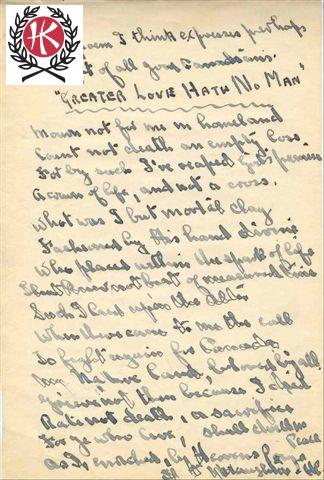 HK
I think expresses perhaps
of all good Canadians.
"GREATER LOVE HATH NO MAN"
Mourn not for me in homeland
Count not death an empty loss
For by such I've reaped God's promise
A crown of life, and not a cross.
What was I but mortal clay
Fashioned by His hand divine
Who placed within the spark of life
that of measured time
Such I cast upon the
When there came to me the call
To fight again for Canada
My native land, beloved by all
not then because I died
Rate not death, a sacrifice
For ye who live, shall dwell in
Peace
As I enriched by Heavens